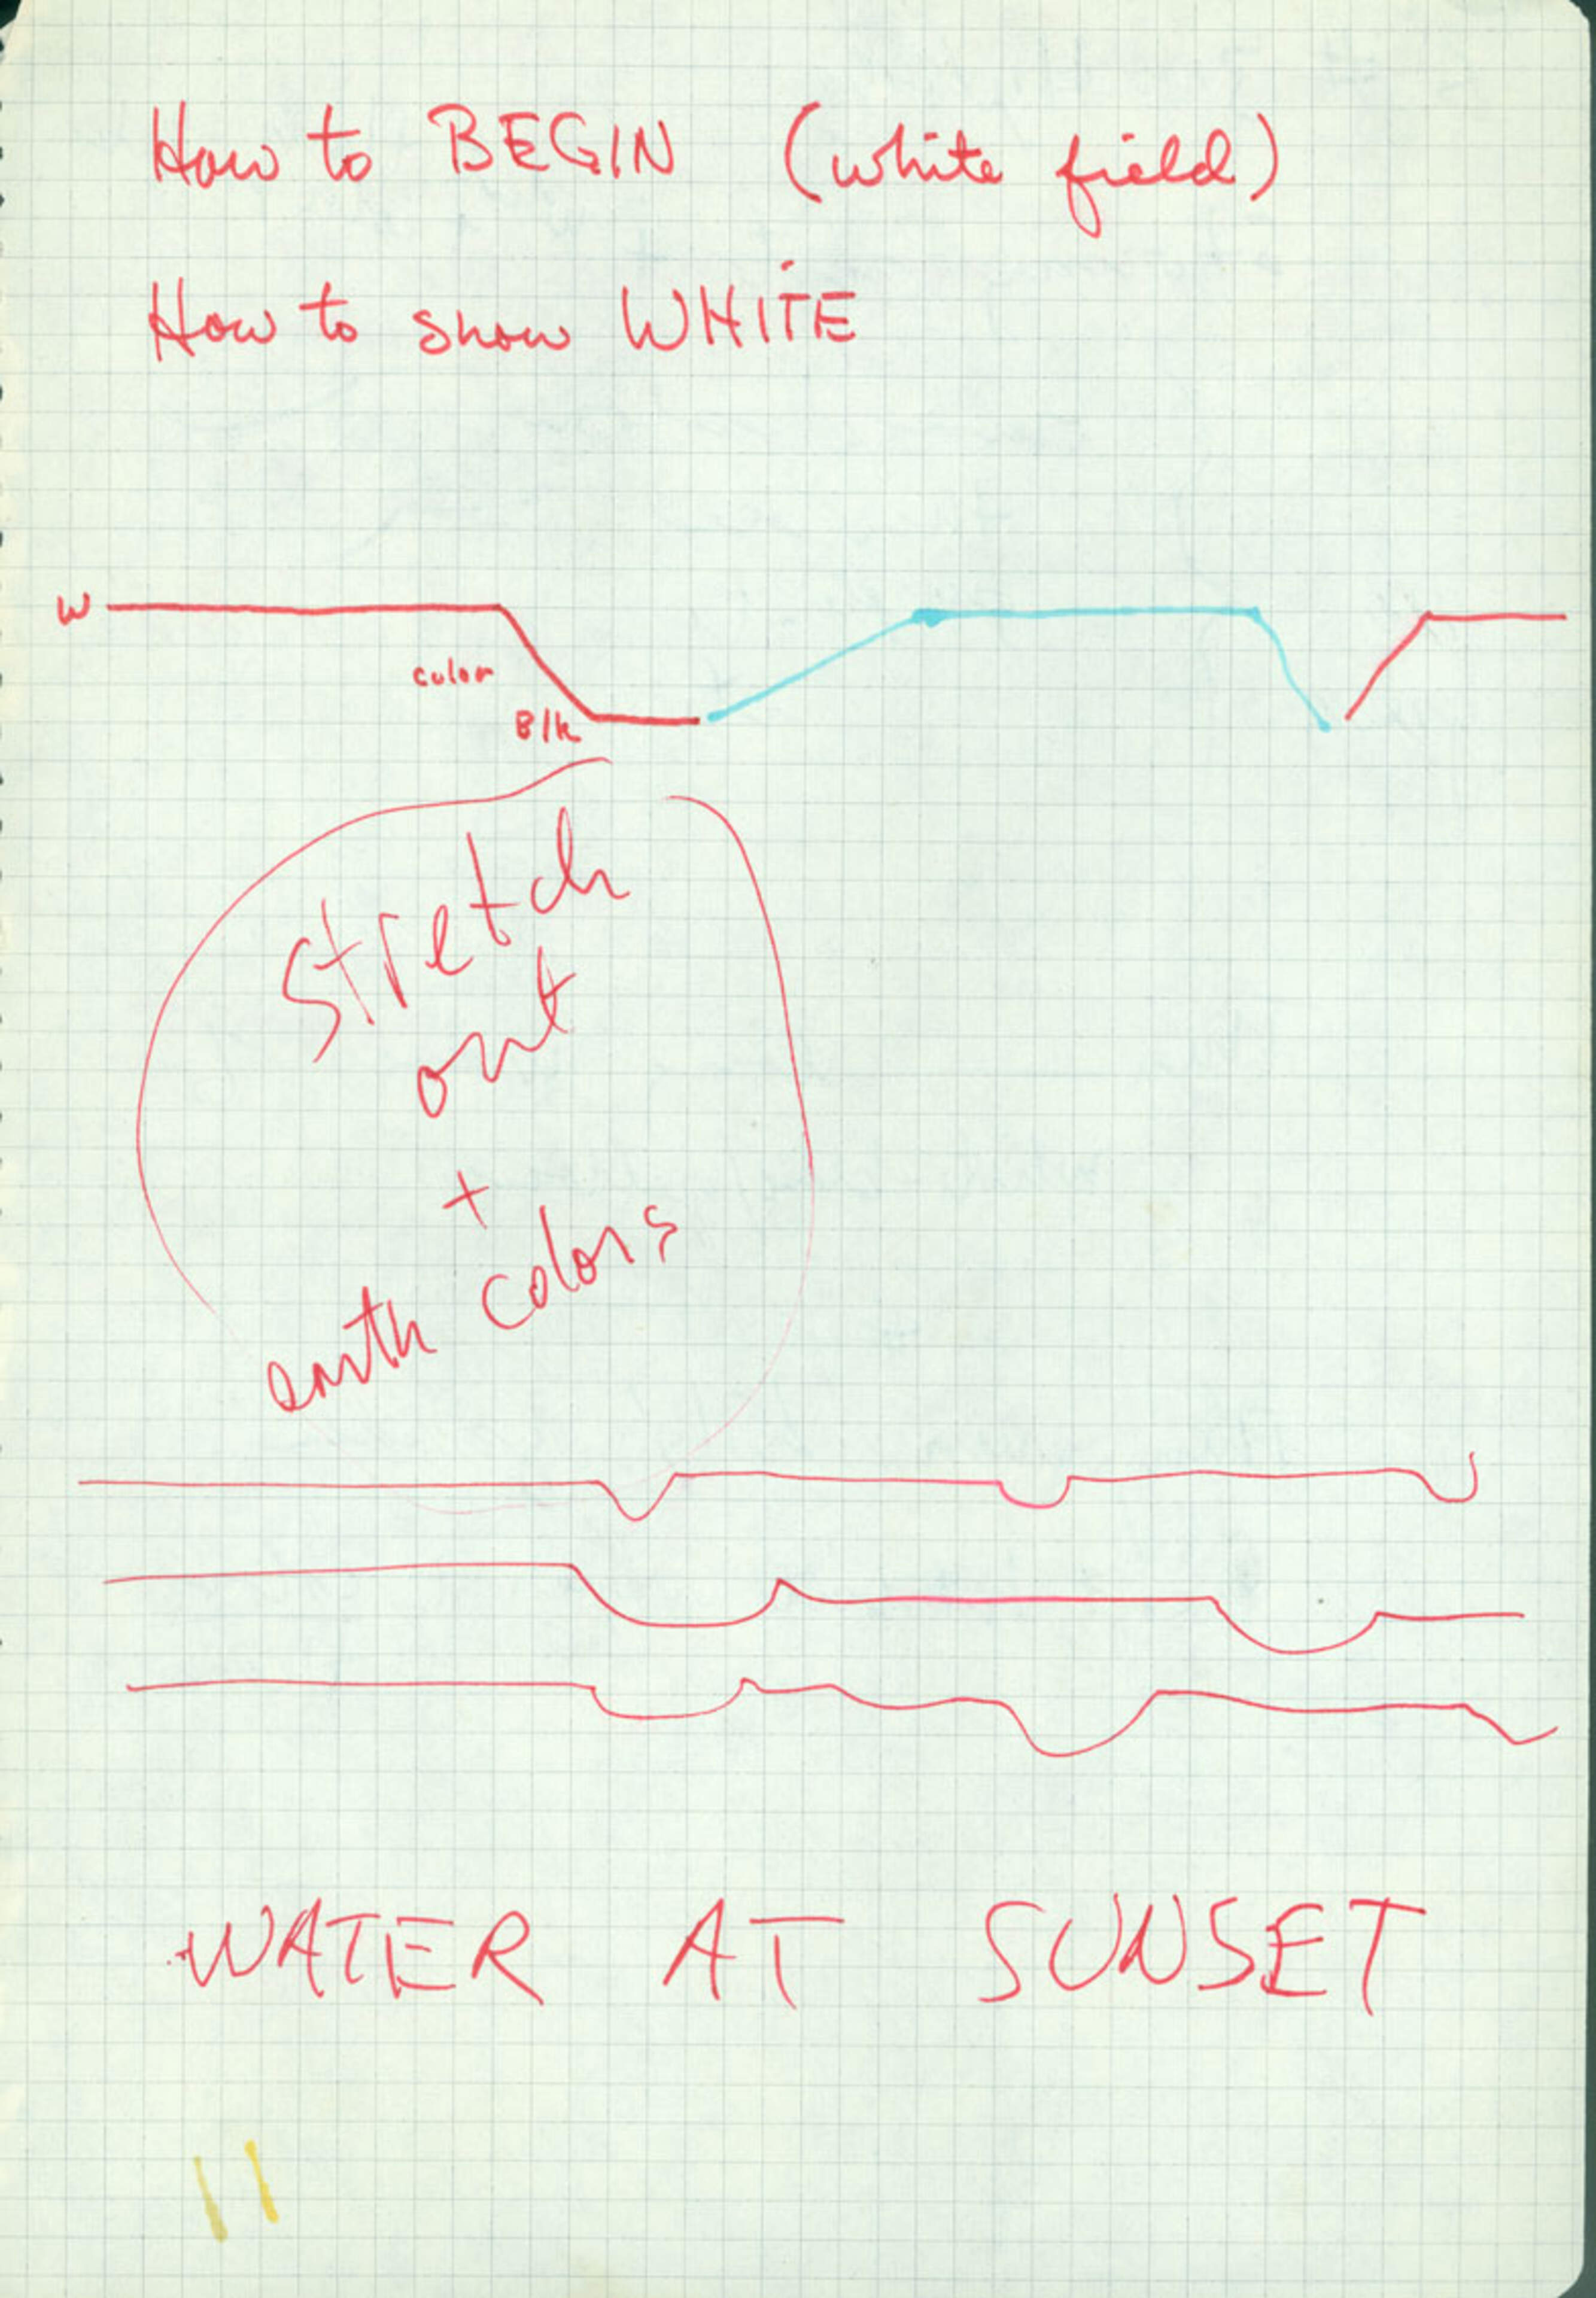 How to BEGIN (white field)
How to show WHiTE
W
color
Blk
Stretch
out
+
earth colors
WATER AT SUNSET